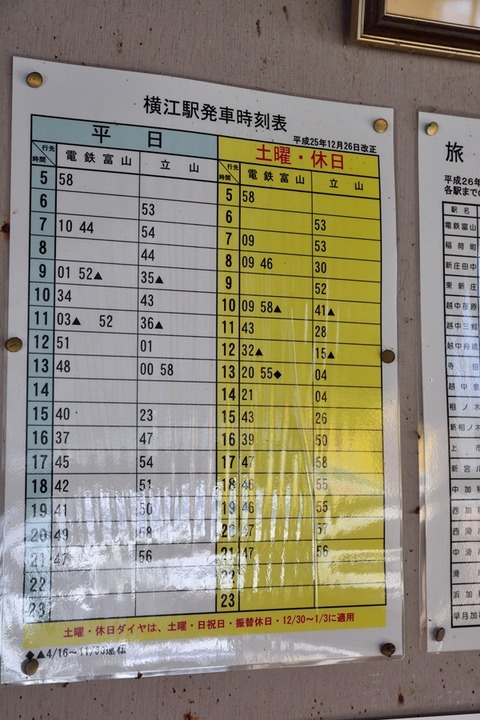 横江駅発車時刻表
平成25年12月26日改正
平 日 土曜・休日
時間 行先 電鉄富山 立 山 時間 行先 電鉄富山 立 山
5 58 5 58
6 53 6 53
7 10 44 54 7 09 53
8 44 8 09 46 30
9 01 52▲ 35▲ 9 52
10 34 43 10 09 58▲ 41▲
11 03▲ 52 36▲ 11 43 28
12 51 01 12 32▲ 15▲
13 48 00 58 13 20 55◆ 04
14 14 21 04
15 40 23 15 43 26
16 37 47 16 39 50
17 45 54 17 47 58
18 42 51 18 46 55
19 41 50 19 46 55
20 49 58 20 47 57
21 47 56 21 47 56
22 22
23 23
土曜・休日ダイヤは、土曜・日祝日・振替休日・12/30~1/3に適用
◆▲4/16~11/30運転
旅
平成26年
各駅まで
駅 名
電鉄富山
稲荷町
新庄田中
東新庄
越中荏原
越中三郷
越中舟橋
寺 田
越中泉
相ノ木
新相ノ木
上 市
新宮川
中加積
西加積
西滑川
中滑川
滑 川
浜加積
早月加積